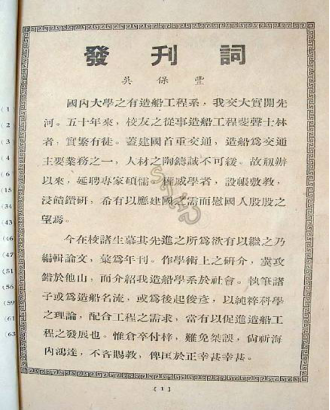 發刊詞
吳保豐
國內大學之有造船工程系,我交大實開先
河。五十年來,校友之從事造船工程蜚聲士林
者,實繁有徒。蓋建國首重交通,造船為交通
主要業務之一,人材之陶鑄誠不可緩。故規辦
以來,延聘專家碩儒,權威學者,設帳敷教,
浸饋鑽研,希有以應建國之需而慰國人殷殷之
望焉。
今在校諸生慕其先進之所為欲有以繼之乃
編輯論文,彙為年刊。作學術上之研介,冀攻
錯於他山,而介紹我造船學系於社會。執筆諸
子或為造船名流,或為後起俊彥,以純粹科學
之理論,配合工程之需求,當有以促進造船工
程之發展也。惟倉卒付梓,難免桀誤,尚祈海
內鴻達,不吝賜教,俾匡於正幸甚幸甚。
[1]